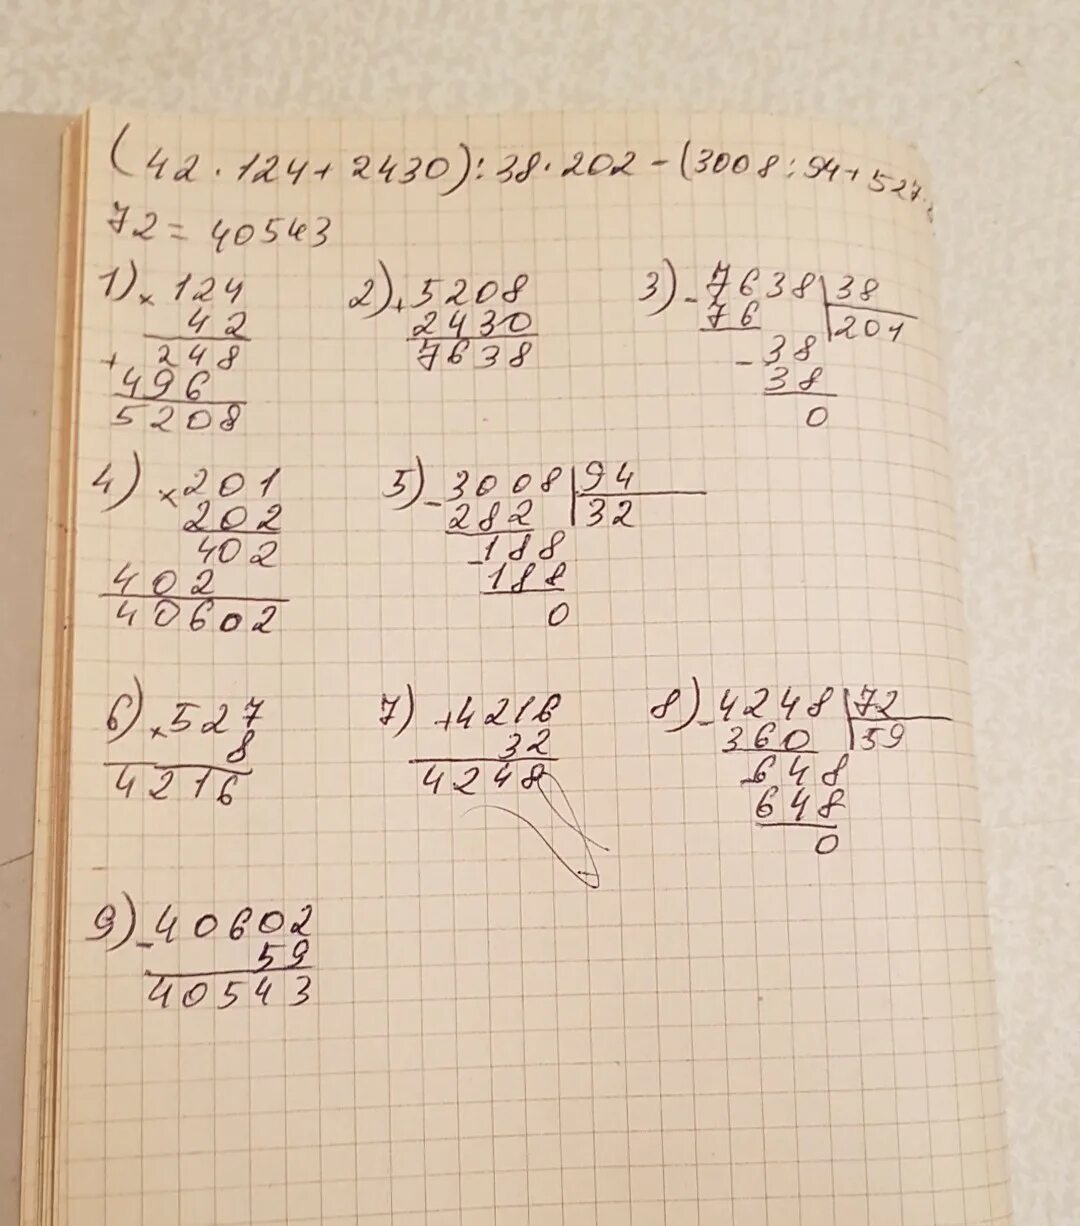 (42 · 124 + 2430) : 38 · 202 - (3008 : 94 + 527 ·
72 = 40543
1) × 124
42
+ 248
496
5208
2) + 5208
2430
7638
3) - 7638 | 38
76 | 201
- 38
38
0
4) × 201
202
402
402
40602
5) - 3008 | 94
282 | 32
- 188
188
0
6) × 527
8
4216
7) + 4216
32
4248
8) - 4248 | 72
360 | 59
- 648
648
0
9) - 40602
59
40543